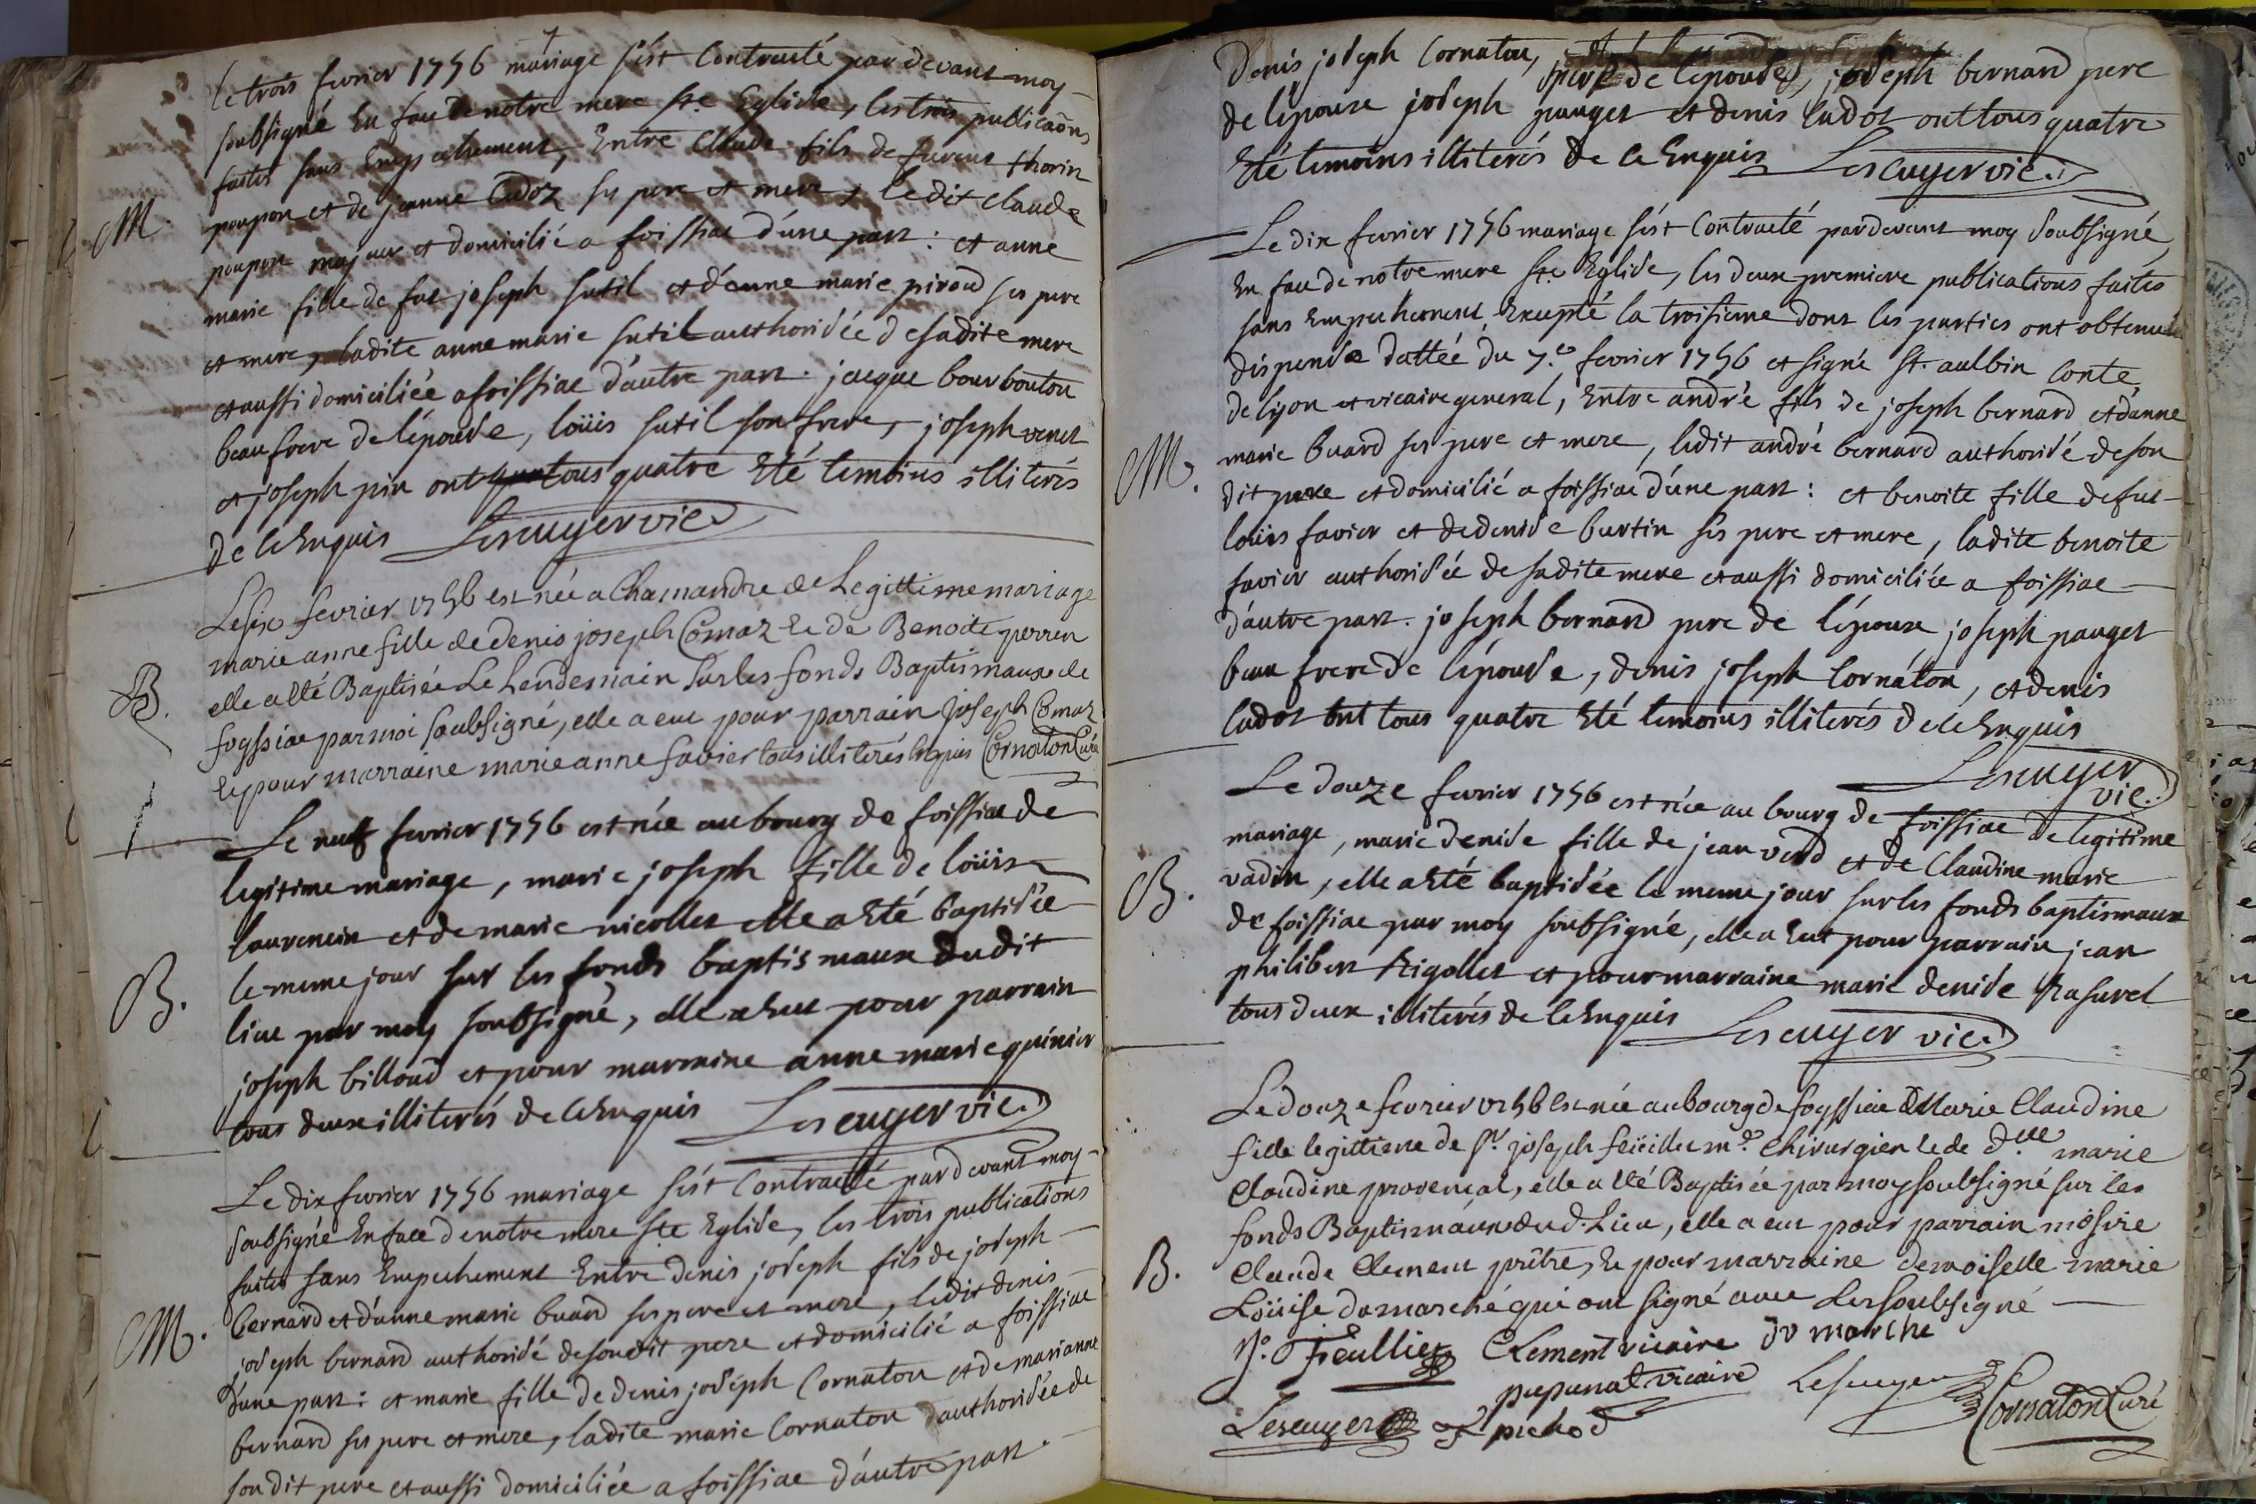 le trois fevrier 1756 mariage s'est Contracté par devant moy
soubsigné En face de notre mere ste Eglise, les trois publicaõns
faites sans Empechement, Entre Claude fils de furent thorin
poupon et de jeanne Cadoz ses pere et mere, ledit Claude
M.
poupon majeur et domicilié a foissiac d'une part : et anne
marie fille de fut joseph sutil et d'anne marie piroud ses pere
et mere, ladite anne marie sutil authorisée de sadite mere
et aussi domiciliée a foissiac d'autre part. jacque bourbouton
beau frere de l'épouse, loüis sutil son frere, joseph venet
et joseph pin ont tous quatre Eté temoins illiterés
de ce Enquis Lescuyer vic.
Le six fevrier 1756 est née a Chamandre de Legittime mariage
marie anne fille de denis joseph Comaz et de Benoite perrin
B.
elle a été Baptisée Le Lendemain sur les fonds Baptismaux de
foyssiac par moi soubsigné, elle a eut pour parrain joseph Comaz
et pour marraine marie anne favier tous illiterés Enquis Cornaton Curé
Le neuf fevrier 1756 est née au bourg de foissiac de
legitime mariage, marie joseph fille de loüis
laurencin et de marie nicollet elle a Eté baptisée
B.
le meme jour sur les fonds baptismaux dudit
lieu par moy soubsigné, elle a Eut pour parrain
joseph billoud et pour marraine anne marie quinier
tous deux illiterés de ce Enquis Lescuyer vic.
Le dix fevrier 1756 mariage s'est Contracté par devant moy
soubsigné En face de notre mere ste Eglise, les trois publications
faites sans Empechement Entre denis joseph fils de joseph
bernard et d'anne marie buard ses pere et mere, ledit denis
M.
joseph bernard authorisé de son dit pere et domicilié a foissiac
d'une part : et marie fille de denis joseph Cornaton et de marianne
bernard ses pere et mere, ladite marie Cornaton authorisée de
son dit pere et aussi domiciliée a foissiac d'autre part.
Denis joseph Cornaton,
pere de l'épouse, joseph bernard pere
de l'époux joseph pauget et denis ludot ont tous quatre
Eté temoins illiterés de ce Enquis Lescuyer vic.
Le dix fevrier 1756 mariage s'est Contracté par devant moy soubsigné,
En face de notre mere ste Eglise, les deux premiere publications faites
sans Empechement Excepté la troisieme dont les parties ont obtenu
dispense dattée du 7.e fevrier 1756 et signé st. aulbin Conte
de lyon et vicaire general, Entre andré fils de joseph bernard et d'anne
M.
marie buard ses pere et mere, ledit andré bernard authorisé de son
dit pere et domicilié a foissiac d'une part : et benoite fille de fut
loüis favier et de denise burtin ses pere et mere, ladite benoite
favier authorisée de sadite mere et aussi domiciliée a foissiac
d'autre part. joseph bernard pere de l'époux, joseph pauget
beau frere de l'épouse, denis joseph Cornaton, et denis
ludot ont tous quatre Eté temoins illiterés de ce Enquis
Lescuyer
vic.
Le douze fevrier 1756 est née au bourg de foissiac de legitime
mariage, marie denise fille de jean verd et de Claudine marie
B.
vadin, elle a Eté baptisée le meme jour sur les fonds baptismaux
de foissiac par moy soubsigné, elle a Eut pour parrain jean
philibert Rigollet et pour marraine marie denise Rasurel
tous deux illiterés de ce Enquis Lescuyer vic.
Le douze fevrier 1756 est née au bourg de foyssiac Marie Claudine
fille legittime de sr. joseph feüillet me. Chirurgien et de dlle marie
Claudine provençal, elle a été Baptisée par moy soubsigné sur les
fonds Baptismaux dud. Lieu, elle a eut pour parrain messire
B.
Claude Clement prêtre, et pour marraine demoiselle marie
Loüise damarché qui ont signé avec Les soubsigné
J. Feulliet Clement vicaire du marche
pupunat vicaire Lescuyer
Lescuyer pichod Cornaton Curé